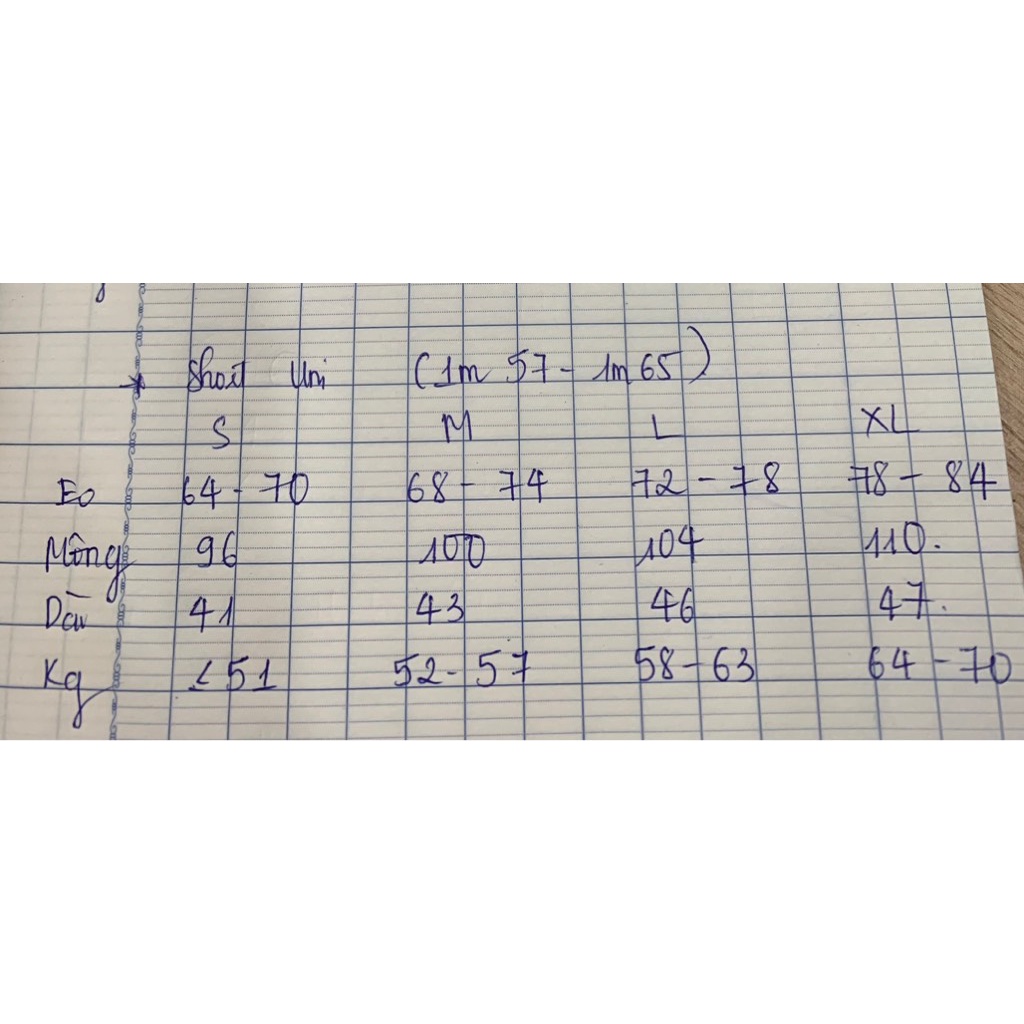 * Short Uni (1m 57 - 1m 65)
S M L XL
Eo 64 - 70 68 - 74 72 - 78 78 - 84
Mông 96 100 104 110.
Dài 41 43 46 47.
Kg ≤ 51 52 - 57 58 - 63 64 - 70